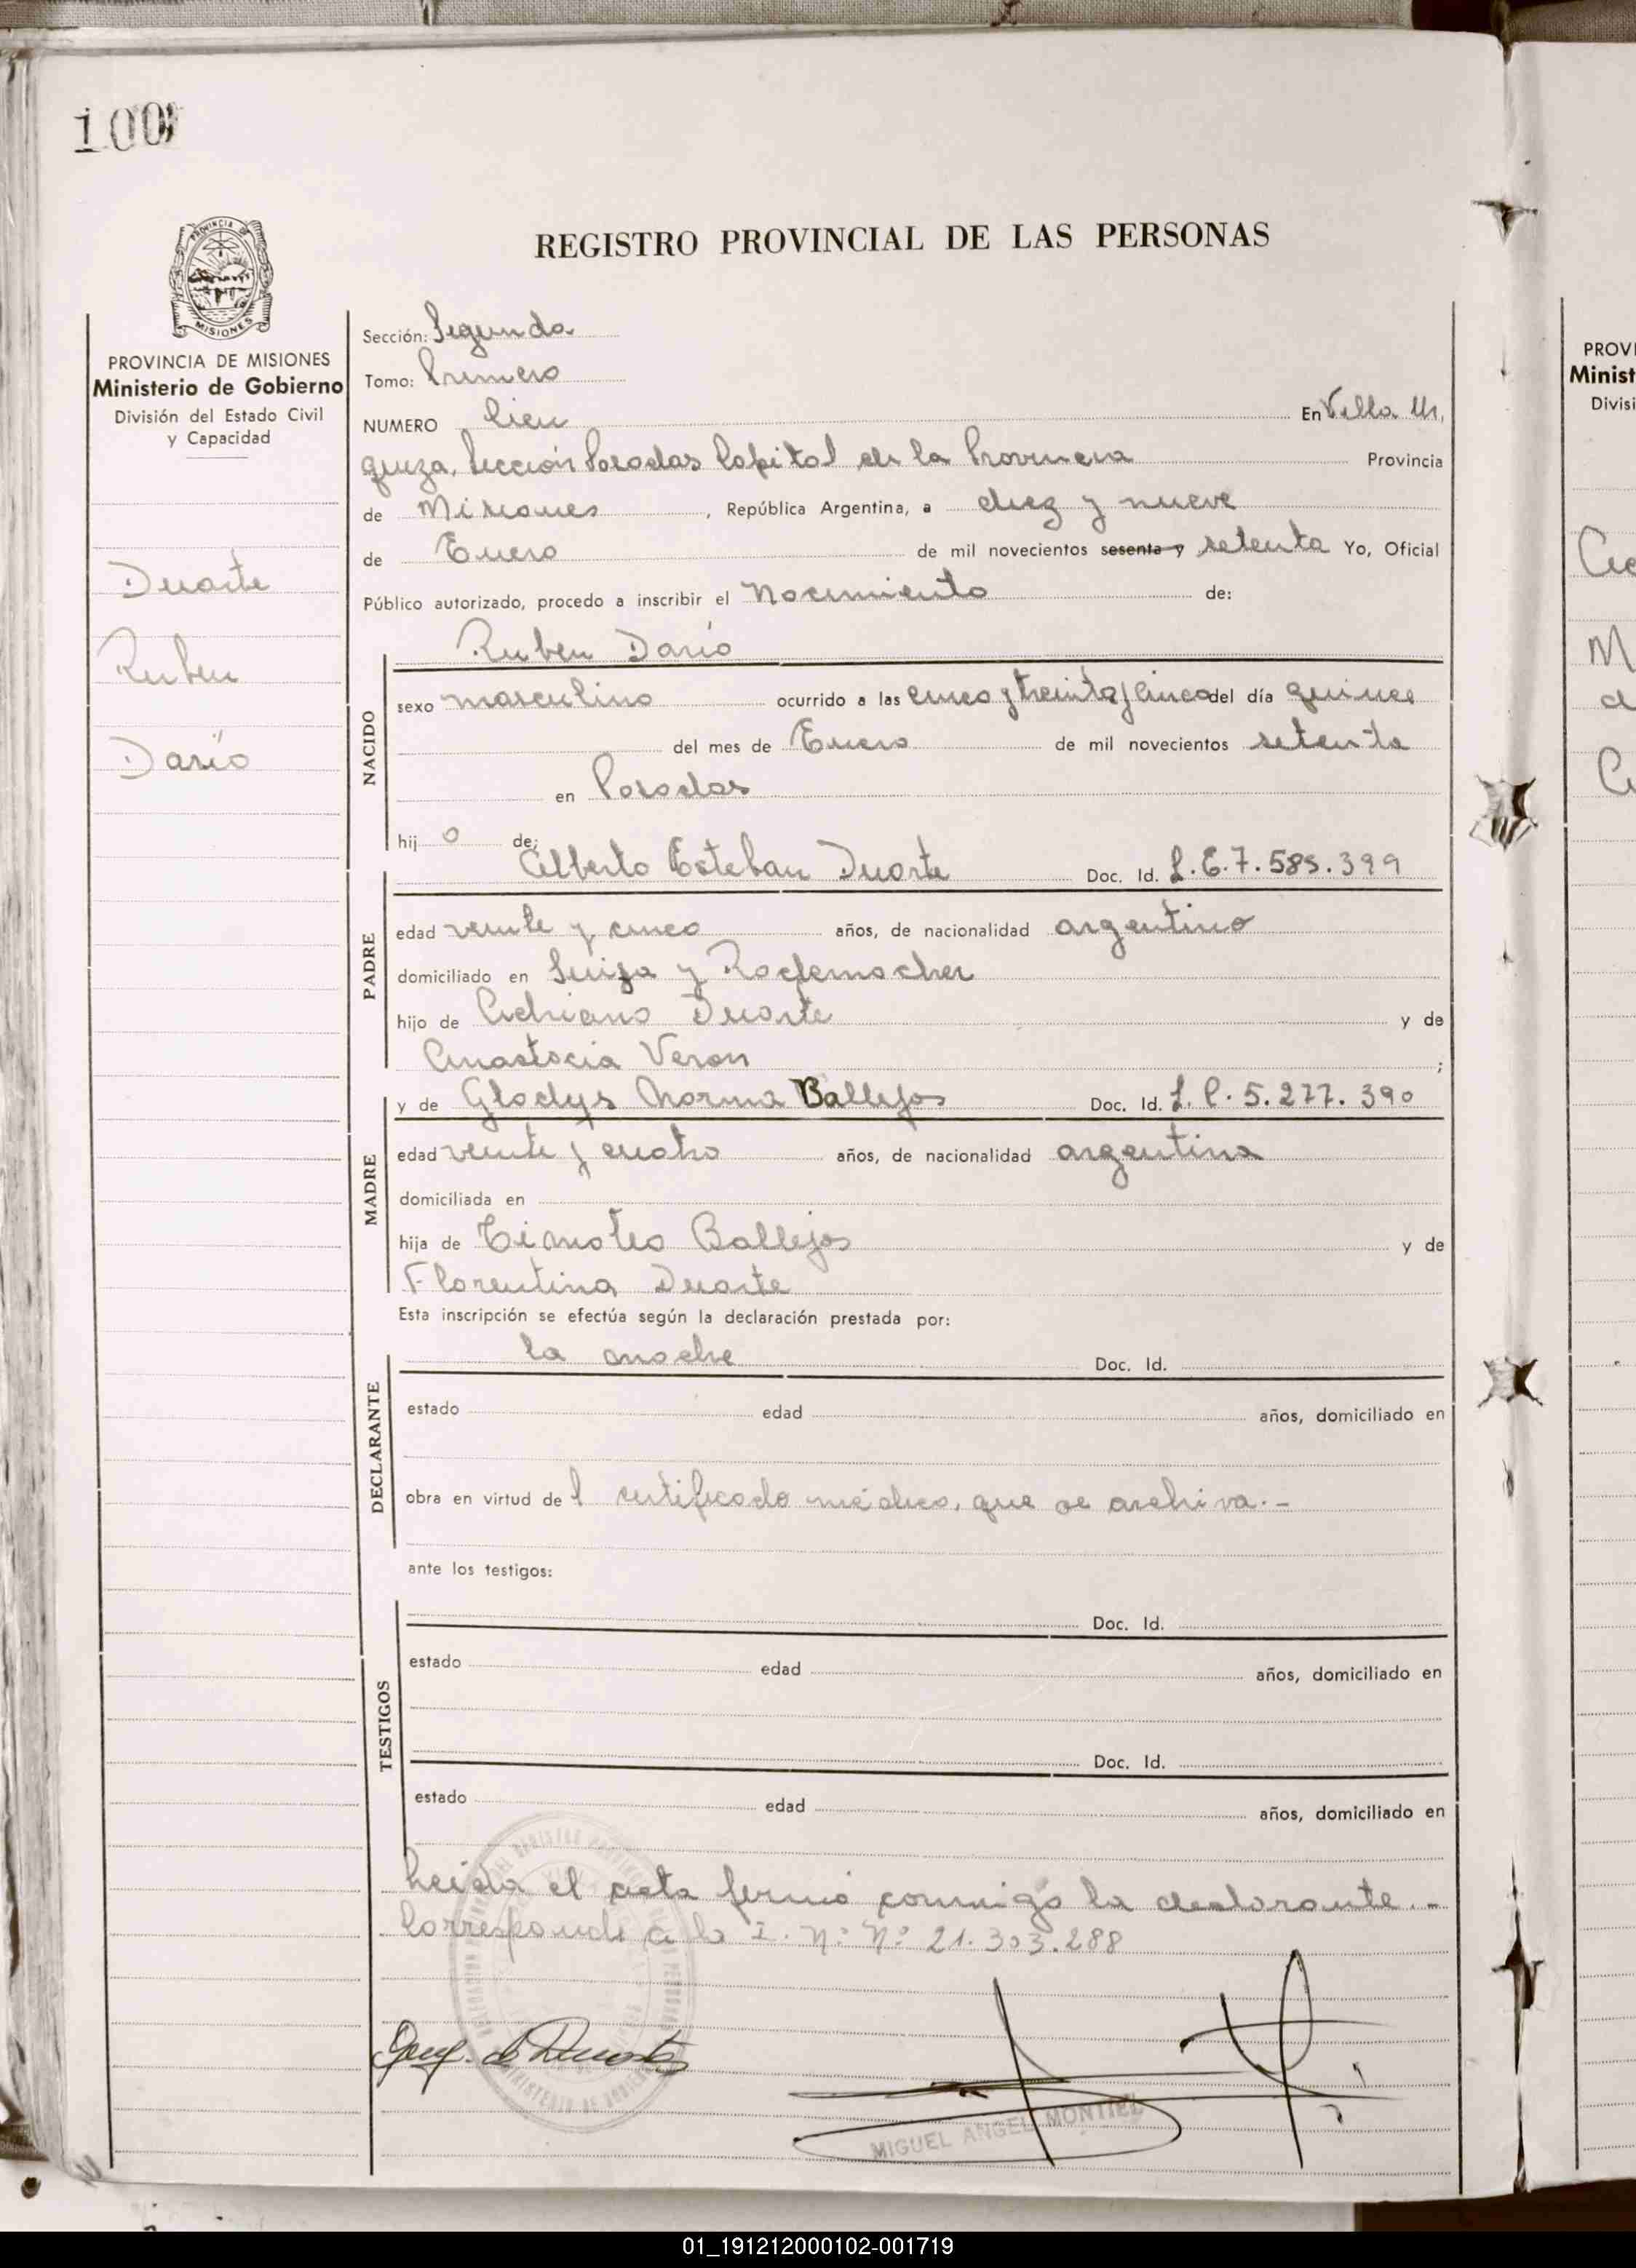 100
PROVINCIA DE
MISIONES
REGISTRO PROVINCIAL DE LAS PERSONAS
PROVINCIA DE MISIONES
Ministerio de Gobierno
División del Estado Civil
y Capacidad
Duarte
Ruben
Darío
Sección: Segunda
Tomo: Primero
NUMERO Cien En Villa Ur,
quiza, Sección Posadas Capital de la Provincia Provincia
de Misiones, República Argentina, a diez y nueve
de Enero de mil novecientos sesenta y setenta Yo, Oficial
Público autorizado, procedo a inscribir el Nacimiento de:
Ruben Darío
NACIDO
sexo masculino ocurrido a las cinco y treinta y cinco del día quince
del mes de Enero de mil novecientos setenta
en Posadas
hij o de:
PADRE
Alberto Esteban Duarte Doc. Id. L.E.7.585.399
edad veinte y cinco años, de nacionalidad argentino
domiciliado en Suiza y
hijo de Adriano Duarte y de
Anastacia Veron ;
MADRE
y de Gladys Norma Ballejos Doc. Id. L.C.5.277.390
edad veinte y cuatro años, de nacionalidad argentina
domiciliada en
hija de Timoteo Ballejos y de
Florentina Duarte
Esta inscripción se efectúa según la declaración prestada por:
DECLARANTE
la madre Doc. Id.
estado edad años, domiciliado en
obra en virtud de l certificado médico, que se archiva.-
ante los testigos:
TESTIGOS
Doc. Id.
estado edad años, domiciliado en
Doc. Id.
estado edad años, domiciliado en
Leida el acta firmó conmigo la declarante.-
Corresponde a la I. Nº Nº 21.303.288
de Duarte
MIGUEL ANGEL MONTIEL
PROVI
Minist
Divisi
01_191212000102-001719